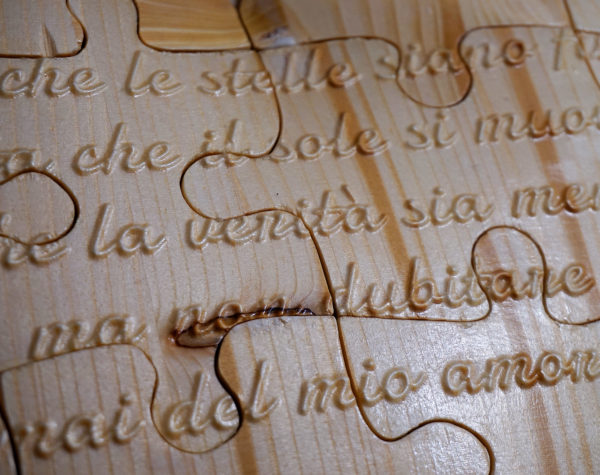 che le stelle siano
che il sole si
la verità sia
ma non dubitare
mai del mio amor